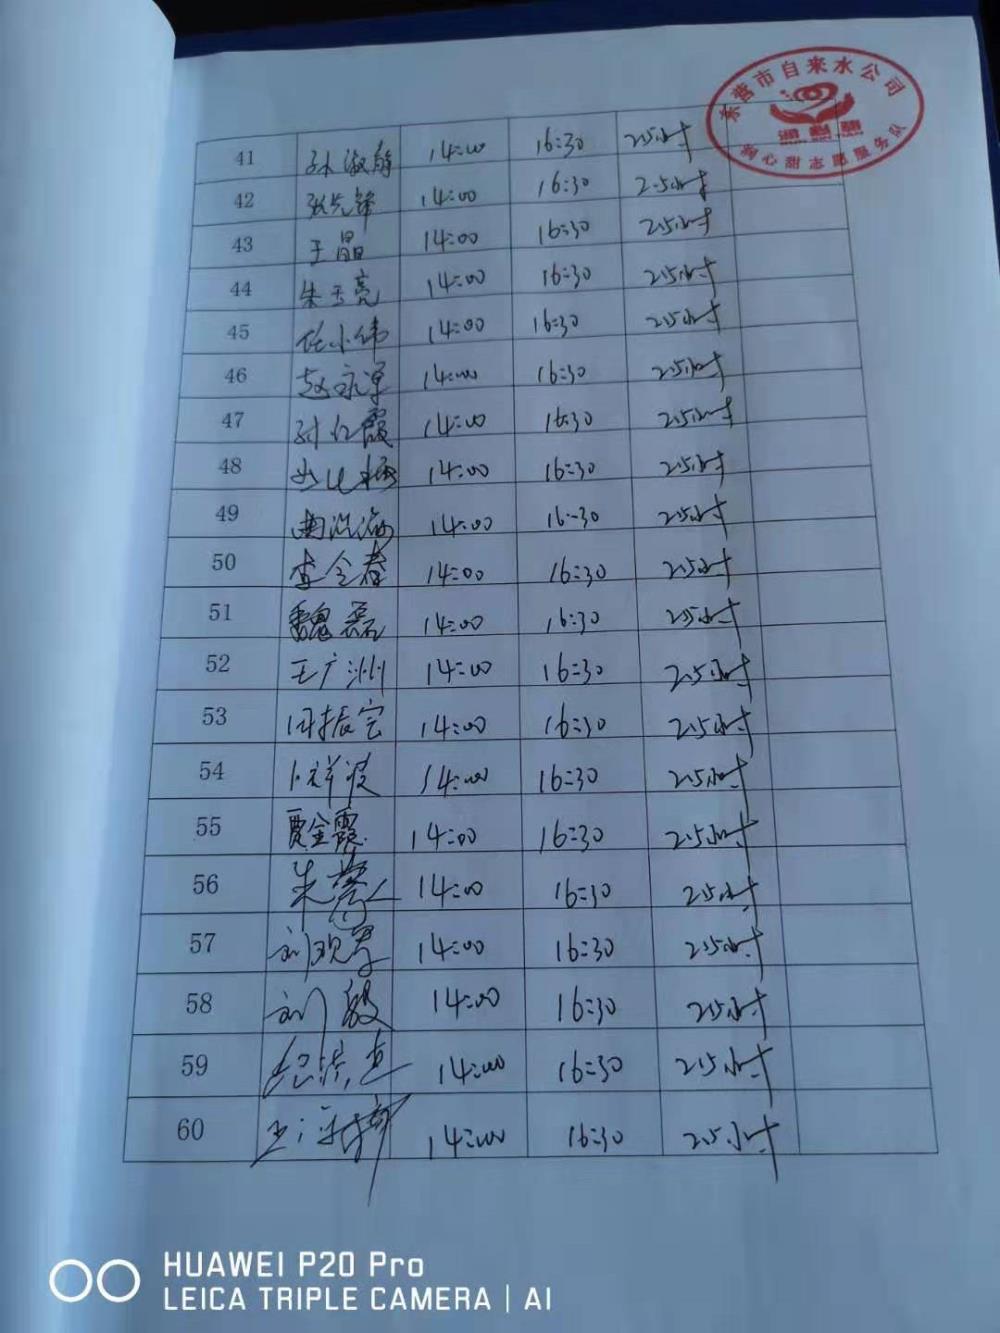 东营市自来水公司
润心甜志愿服务队
41 孙淑静 14:00 16:30 2.5小时
42 张先锋 14:00 16:30 2.5小时
43 王晶 14:00 16:30 2.5小时
44 朱玉亮 14:00 16:30 2.5小时
45 任小伟 14:00 16:30 2.5小时
46 赵永军 14:00 16:30 2.5小时
47 14:00 16:30 2.5小时
48 14:00 16:30 2.5小时
49 14:00 16:30 2.5小时
50 李全春 14:00 16:30 2.5小时
51 魏磊 14:00 16:30 2.5小时
52 王广洲 14:00 16:30 2.5小时
53 田振宝 14:00 16:30 2.5小时
54 14:00 16:30 2.5小时
55 贾金霞 14:00 16:30 2.5小时
56 14:00 16:30 2.5小时
57 14:00 16:30 2.5小时
58 刘毅 14:00 16:30 2.5小时
59 14:00 16:30 2.5小时
60 14:00 16:30 2.5小时
HUAWEI P20 Pro
LEICA TRIPLE CAMERA | AI